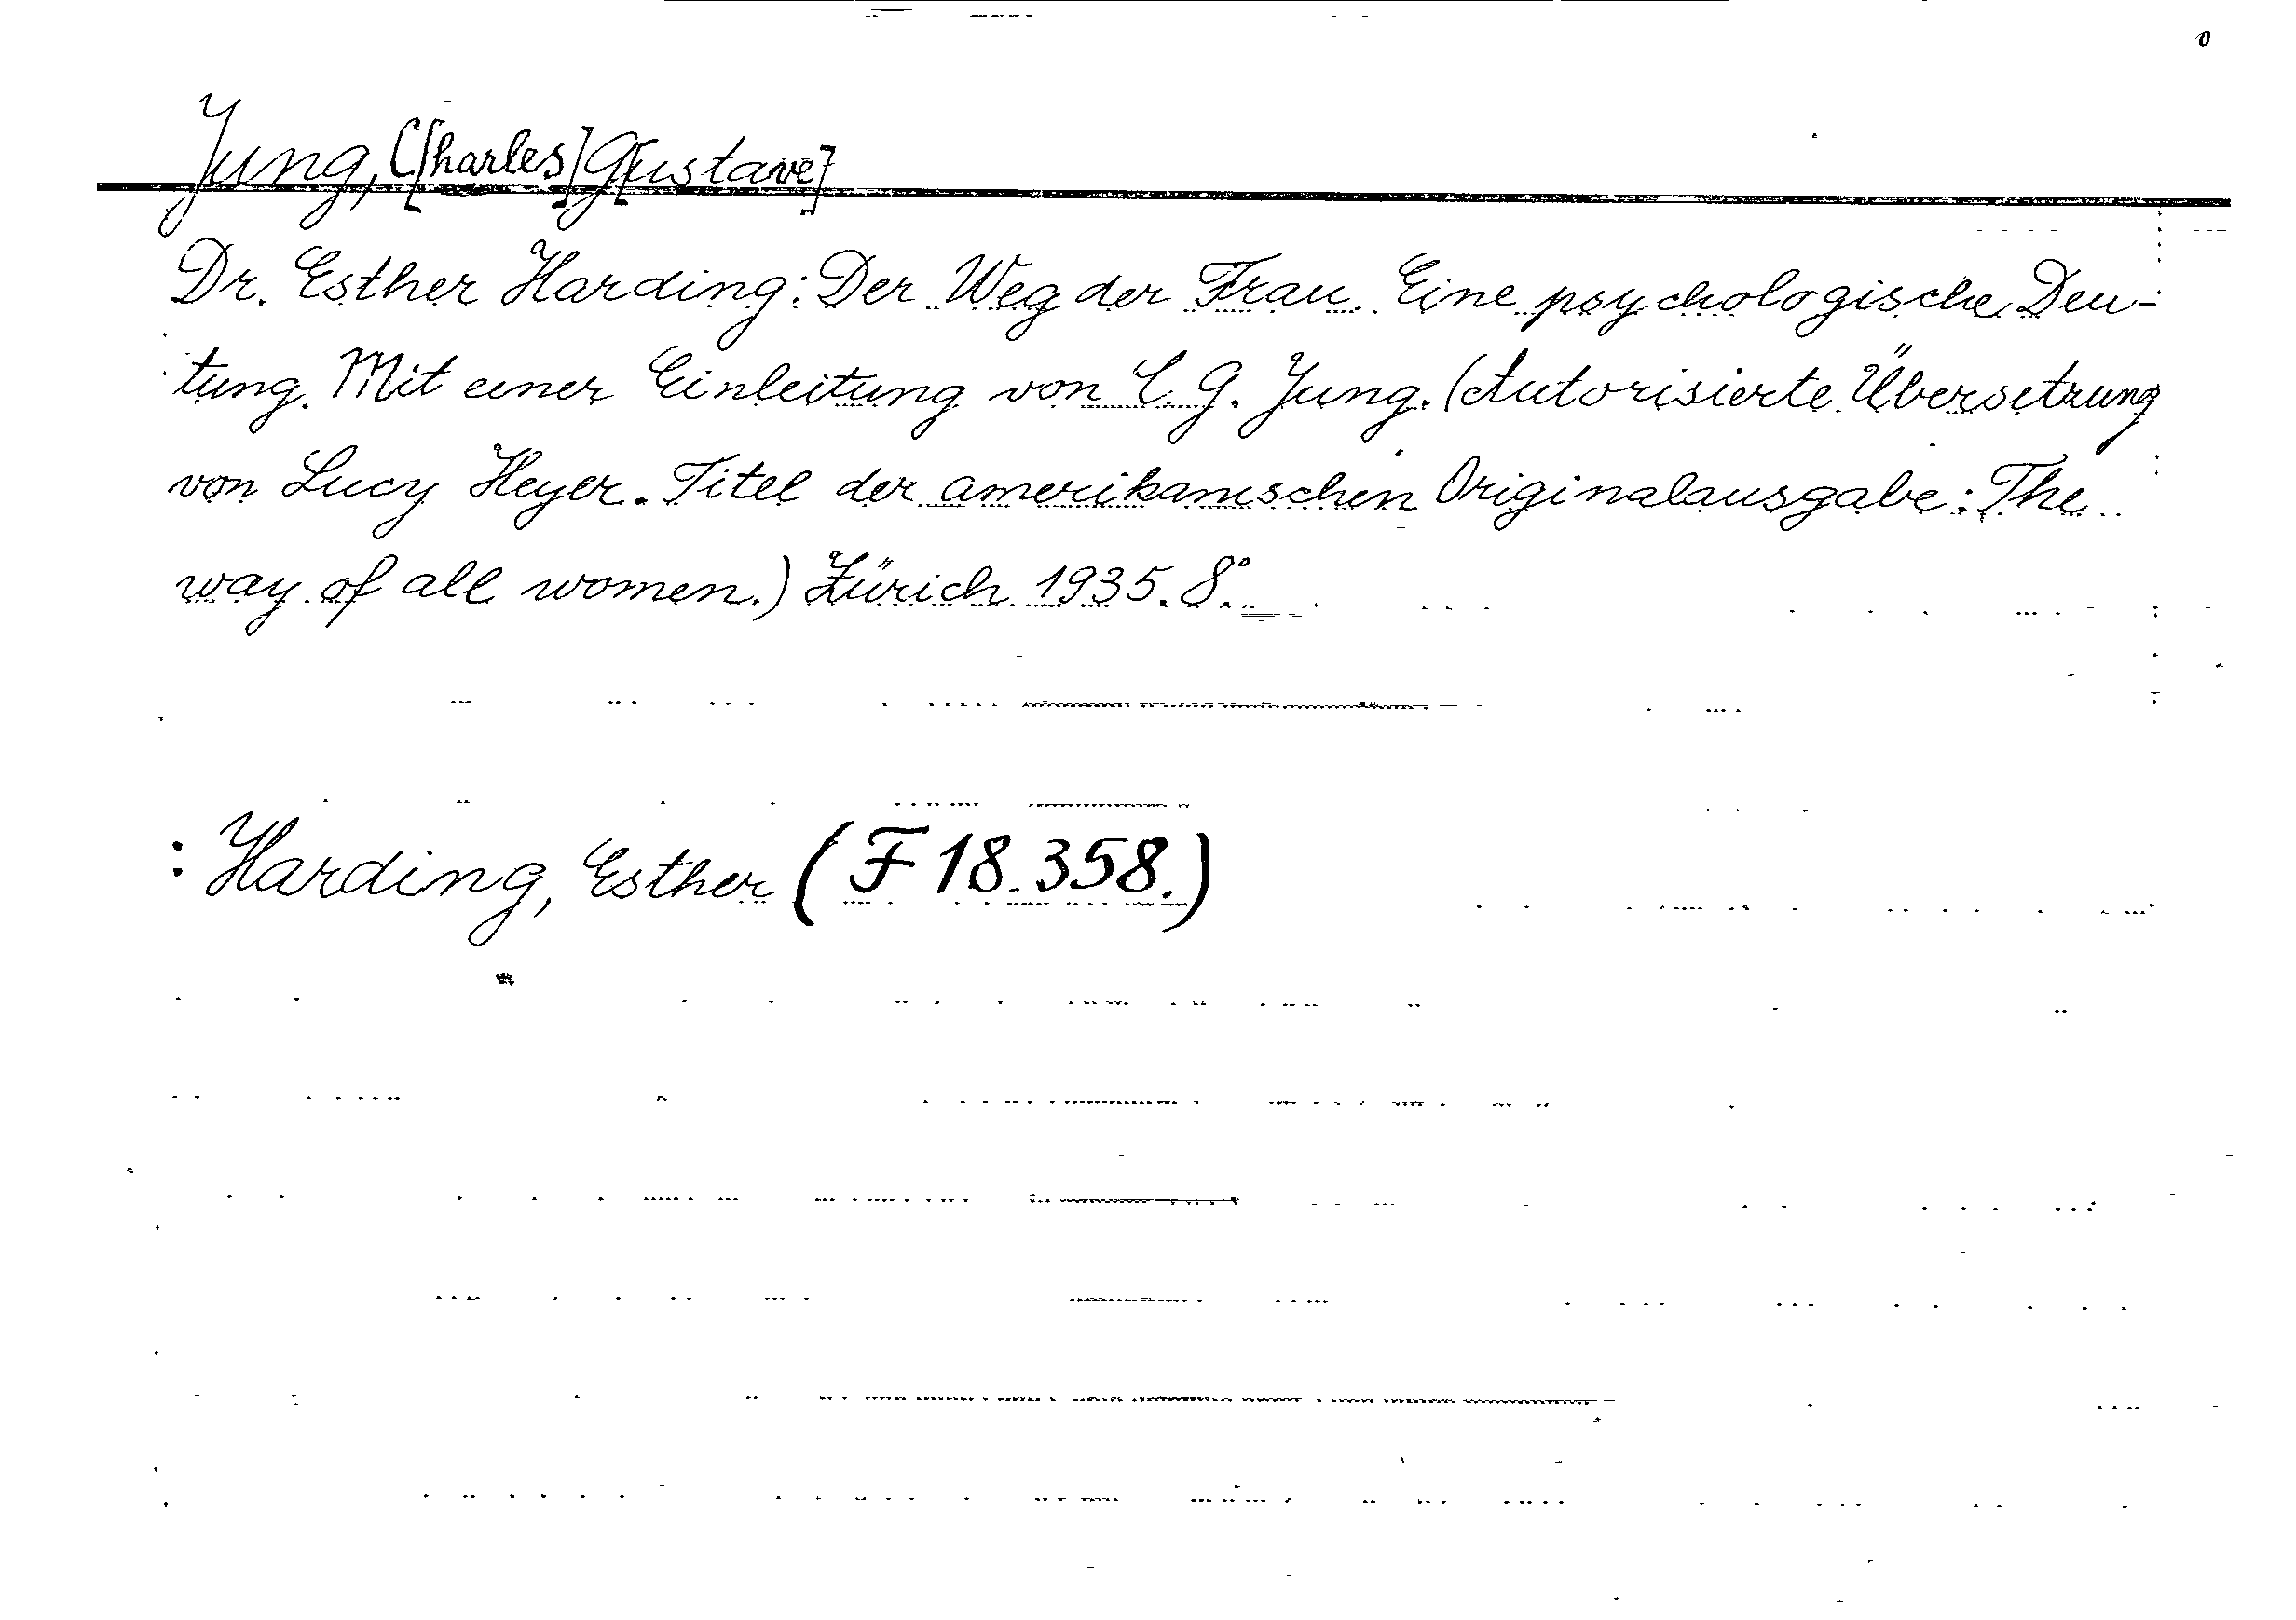 Jung, C[harles] G[ustave]
Dr. Esther Harding: Der Weg der Frau. Eine psychologische Deu-
tung. Mit einer Einleitung von C. G. Jung. (Autorisierte Übersetzung
von Lucy Heyer. Titel der amerikanischen Originalausgabe: The
way of all women.) Zürich 1935. 8°.
: Harding, Esther (F 18.358.)